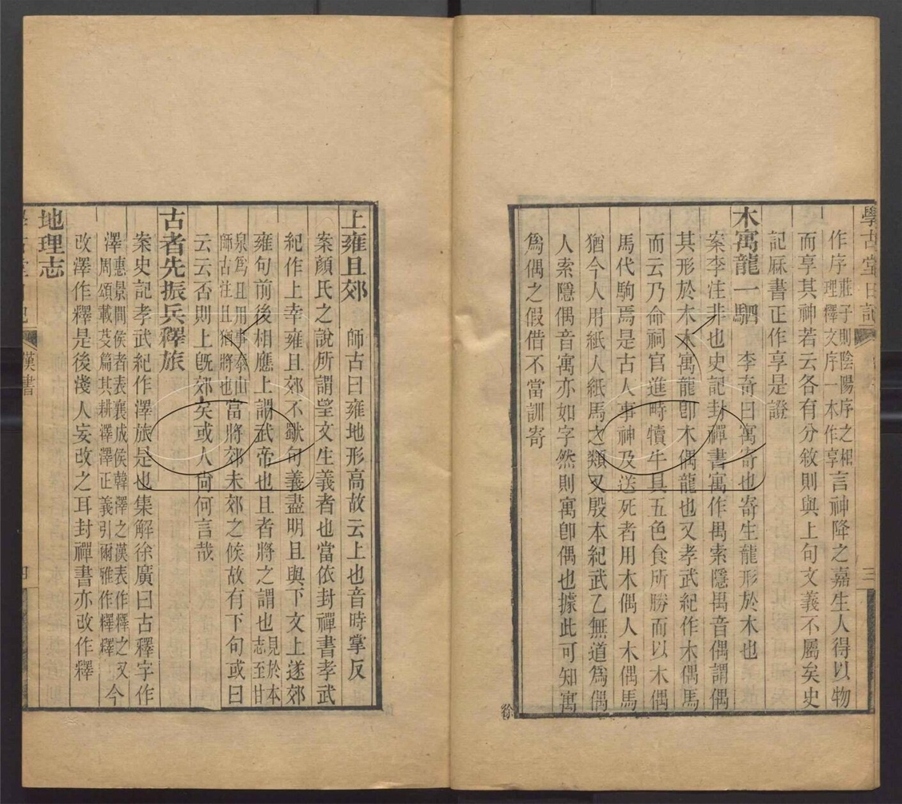 學古堂日記
三
作序莊子則陰陽序之相理釋文序一本作享言神降之嘉生人得以物
而享其神若云各有分敘則與上句文義不屬矣史
記厤書正作享是證
木寓龍一駟　李奇曰寓寄也寄生龍形於木也
案李注非也史記封禪書寓作禺索隱禺音偶謂偶
其形於木木寓龍卽木偶龍也又孝武紀作木偶馬
而云乃命祠官進畤犢牛具五色食所勝而以木偶
馬代駒焉是古人事神及送死者用木偶人木偶馬
猶今人用紙人紙馬之類又殷本紀武乙無道爲偶
人索隱偶音寓亦如字然則寓卽偶也據此可知寓
爲偶之假借不當訓寄
徐
上雍且郊　師古曰雍地形高故云上也音時掌反
案顏氏之說所謂望文生義者也當依封禪書孝武
紀作上幸雍且郊不斷句義盡明且與下文上遂郊
雍句前後相應上謂武帝也且者將之謂也見於本志至甘
泉爲且用事泰山師古注且猶將也當將郊未郊之候故有下句或曰
云云否則上旣郊矣或人尙何言哉
古者先振兵釋旅
案史記孝武紀作澤旅是也集解徐廣曰古釋字作
澤惠景間侯者表襄成侯韓澤之漢表作釋之又周頌載芟篇其耕澤澤正義引爾雅作釋釋今
改澤作釋是後淺人妄改之耳封禪書亦改作釋
地理志
漢書
四